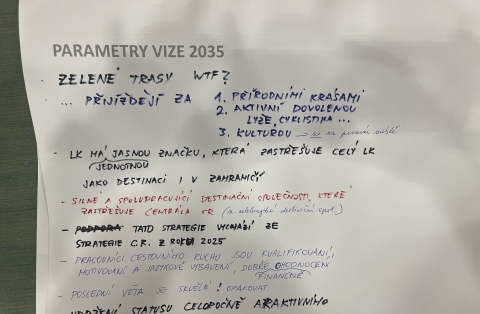 PARAMETRY VIZE 2035
· ZELENÉ TRASY WTF?
· ... PŘIJÍŽDĚJÍ ZA 1. PŘÍRODNÍMI KRÁSAMI
2. AKTIVNÍ DOVOLENOU
LYŽE, CYKLISTIKA ...
3. KULTUROU → až na prvním místě
· LK MÁ JASNOU ZNAČKU, KTERÁ ZASTŘEŠUJE CELÝ LK
JEDNOTNOU
JAKO DESTINACI I V ZAHRANIČÍ
- SILNÉ A SPOLUPRACUJÍCÍ DESTINAČNÍ SPOLEČNOSTI, KTERÉ
ZASTŘEŠUJE CENTRÁLA CR
- PODPORA TATO STRATEGIE VYCHÁZÍ ZE
STRATEGIE C.R. Z ROKU 2025
- PRACOVNÍCI CESTOVNÍHO RUCHU JSOU KVALIFIKOVANÍ,
MOTIVOVANÍ A JAZYKOVĚ VYBAVENÍ, DOBŘE OHODNOCENÍ
FINANČNĚ
- POSLEDNÍ VĚTA JE SKVĚLÁ! OPAKOVAT
UDRŽENÍ STATUSU CELOROČNĚ ATRAKTIVNÍHO